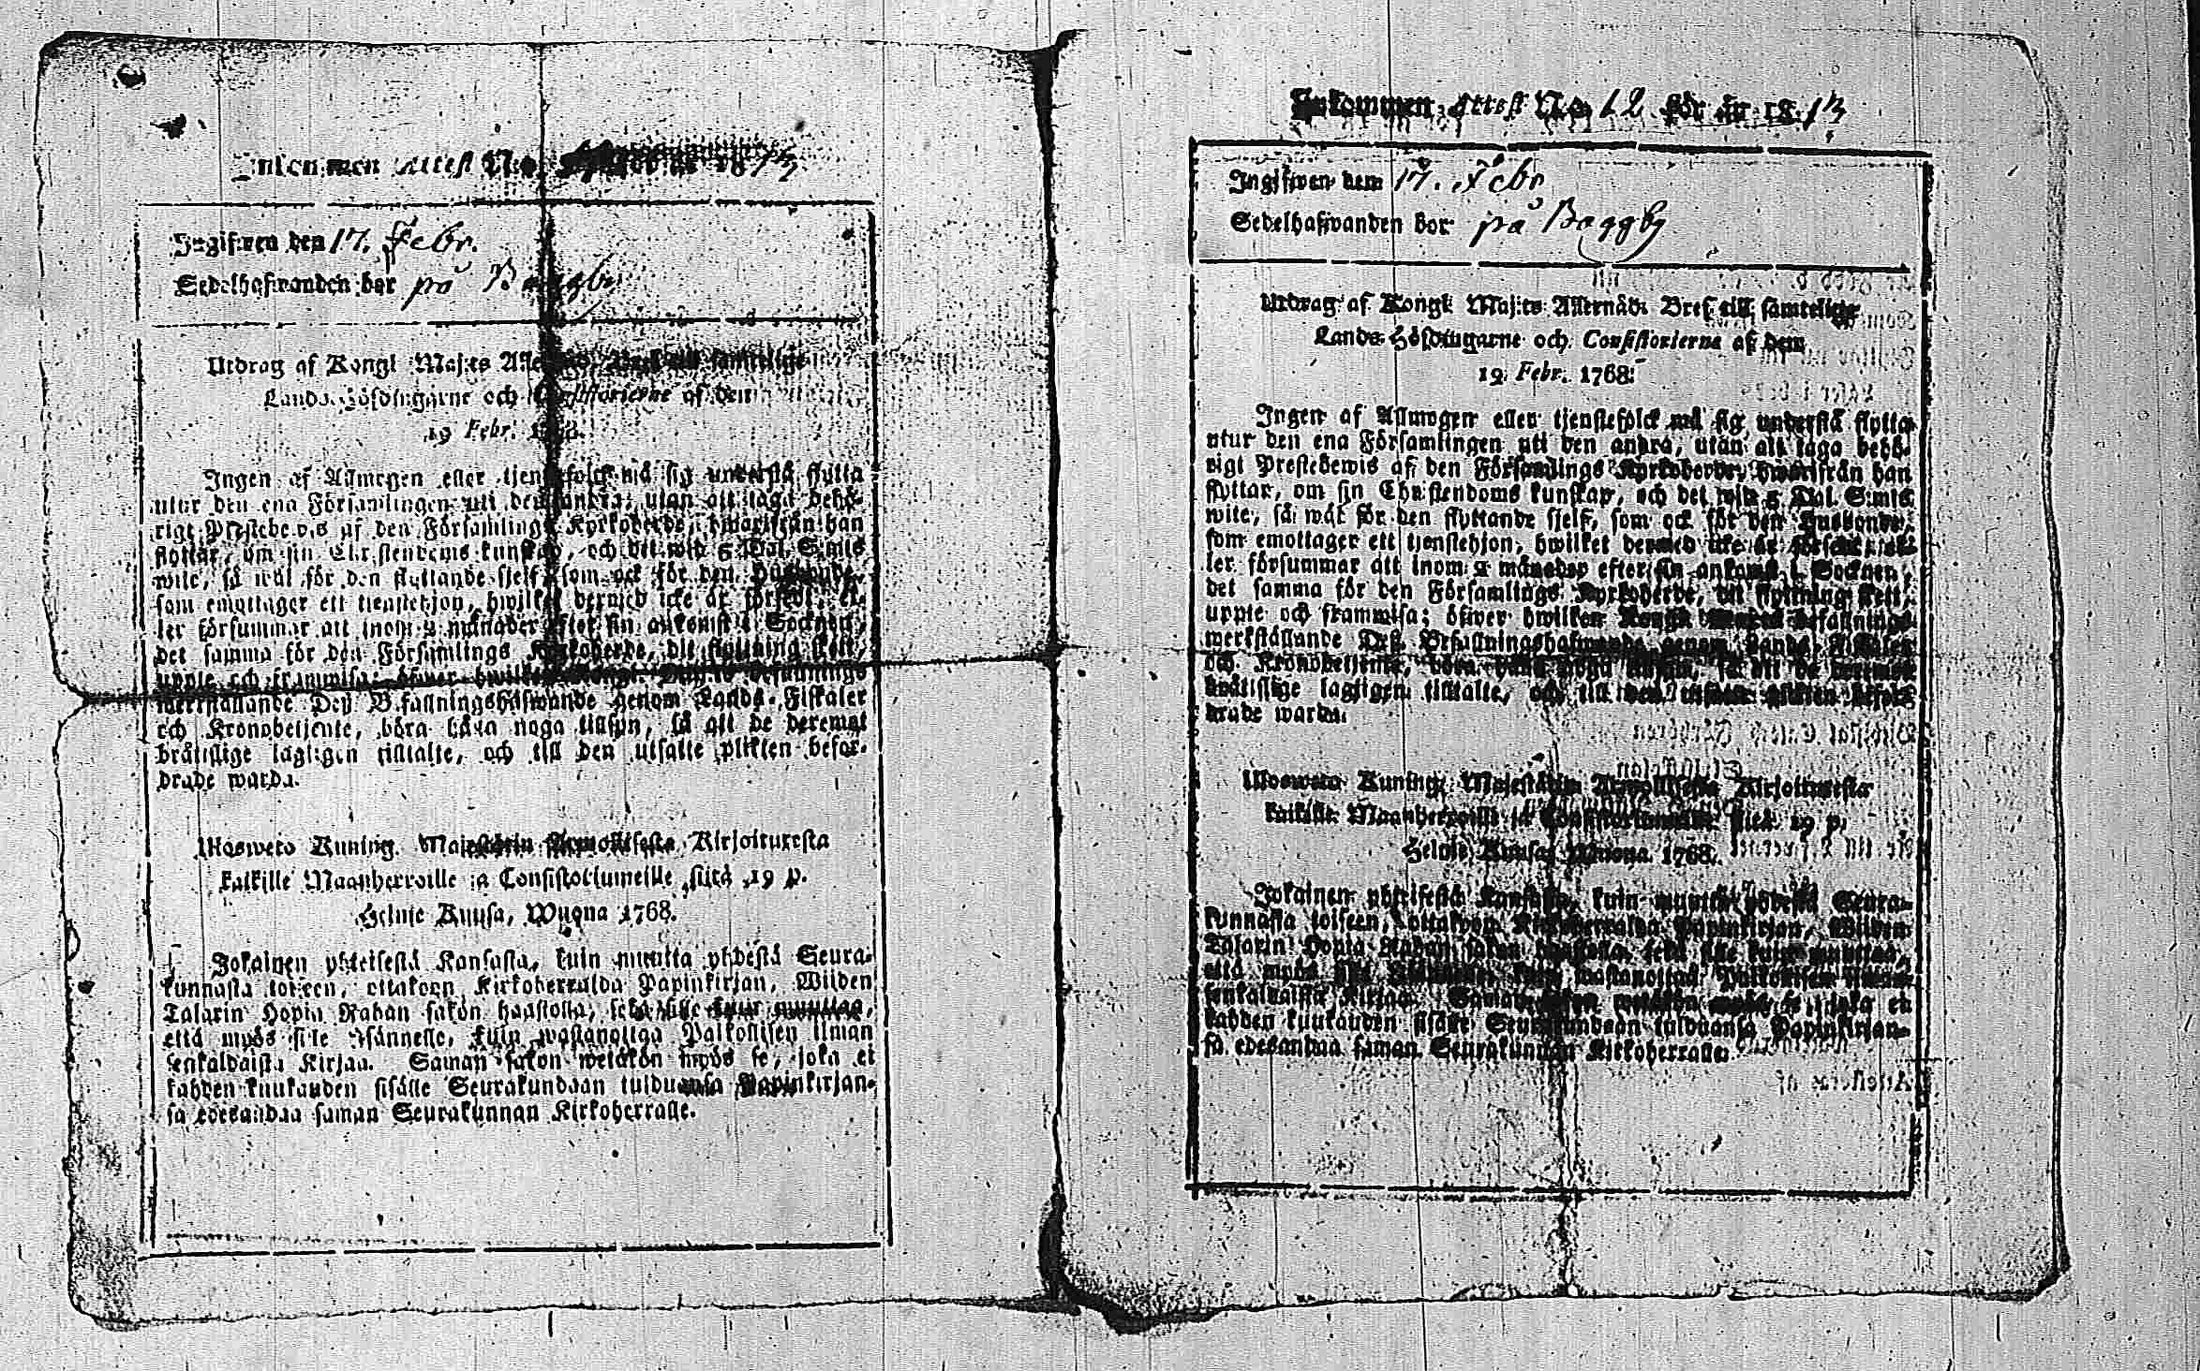 Inkommen Attest No. för år 1813
Ingifwen den 17. Febr.
Sedelhafwanden bor på Baggby
Utdrag af Kongl. Maj:ts Allernåd. Bref till samtelige
Lands-Höfdingarne och Consistorierne af den
19 Febr. 1768.
Ingen af Allmogen eller tjenstefolck må sig understå flytta
utur den ena Församlingen uti den andra, utan att taga behö-
rigt Prestebewis af den Församlings Kyrkoherde, hwarifrån han
flyttar, om sin Christendoms kunskap, och det wid 5 Dal. S:mts
wite, så wäl för den flyttande sjelf, som ock för den Husbonde,
som emottager ett tjenstehjon, hwilket dermed icke är försedt, el-
ler försummar att inom 2 månader efter sin ankomst i Socknen,
det samma för den Församlings Kyrkoherde, dit flyttning skett,
uppte och framwisa; öfwer hwilken Kongl. Maj:ts befallnings
werkställande Deß Befallningshafwande genom Lands-Fiskaler
och Kronobetjente, böra hafwa noga tillsyn, så att de deremot
bråttslige lagligen tilltalte, och till den utsatte plikten befor-
drade warda.
Ulosweto Kuning. Majestätin Armollisesta Kirjoituxesta
kaikille Maanherroille ja Consistoriumeille siitä 19 p.
Helmie Kuusa, Wuona 1768.
Jokainen yhteisestä Kansasta, kuin muutta yhdestä Seura-
kunnasta toiseen, ottakoon Kirkoherralda Papinkirjan, Wiiden
Talarin Hopia Rahan sakon haastolla, sekä sille kuin muuttaa,
että myös sille Isännelle, kuin wastanottaa Palkollisen ilman
senkaldaista Kirjaa. Saman sakon wetäkön myös se, joka ei
kahden kuukauden sisälle Seurakundaan tulduansa Papinkirjan-
sa edesandaa saman Seurakunnan Kirkoherralle.
Inkommen Attest No. 12 för år 1813
Ingifwen dem 17. Febr
Sedelhafwanden bor på Baggby
Utdrag af Kongl. Maj:ts Allernåd. Bref till samtelige
Lands-Höfdingarne och Consistorierne af dem
19. Febr. 1768.
Ingen af Allmogen eller tjenstefolck må sig understå flytta
utur den ena Församlingen uti den andra, utan att taga behö-
rigt Prestebewis af den Församlings Kyrkoherde, hwarifrån han
flyttar, om sin Christendoms kunskap, och det wid 5 Dal. S:mts
wite, så wäl för den flyttande sjelf, som ock för den Husbonde,
som emottager ett tjenstehjon, hwilket dermed icke är försedt, el-
ler försummar att inom 2 månader efter sin ankomst i Socknen,
det samma för den Församlings Kyrkoherde, dit flyttning skett,
uppte och framwisa; öfwer hwilken Kongl. befallnings
werkställande Deß Befallningshafwande genom Lands-Fiskaler
och Kronobetjente, böra noga tillsyn, så att de deremot
bråttslige lagligen tilltalte, och till den utsatte plikten befor-
drade warda.
Ulosweto Kuning. Majestätin Armollisesta Kirjoituxesta
kaikille Maanherroille ja Consistoriumeille siitä 19 p.
Helmie Kuusa, Wuona 1768.
Jokainen yhteisestä Kansasta, kuin muutta yhdestä Seura-
kunnasta toiseen, ottakoon Kirkoherralda Papinkirjan, Wiiden
Talarin Hopia Rahan sakon haastolla, sekä sille kuin muuttaa,
että myös sille Isännelle, kuin wastanottaa Palkollisen ilman
senkaldaista Kirjaa. Saman sakon wetäkön myös se, joka ei
kahden kuukauden sisälle Seurakundaan tulduansa Papinkirjan-
sa edesandaa saman Seurakunnan Kirkoherralle.